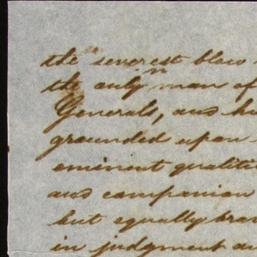 the severest blow
the only man of
Generals, and h
grounded upon
eminent qualiti
and companion
but equally brav
in judgment a